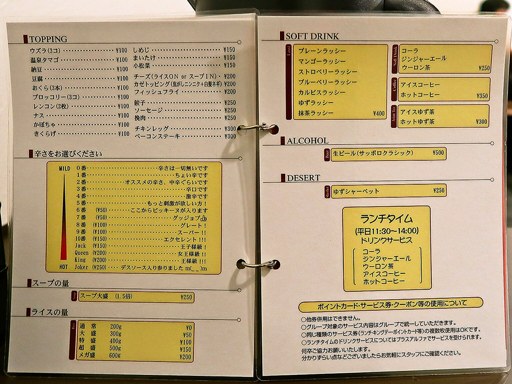 TOPPING
ウズラ(3コ) ¥100
温泉タマゴ ¥100
納豆 ¥100
豆腐 ¥100
おくら(3本) ¥100
ブロッコリー(3コ) ¥100
レンコン(3枚) ¥100
ナス ¥100
かぼちゃ ¥100
きくらげ ¥100
しめじ ¥150
まいたけ ¥150
小松菜 ¥150
チーズ(ライスON or スープIN) ¥200
フィッシュフライ
餃子 ¥250
ソーセージ ¥250
挽肉 ¥250
チキンレッグ ¥300
ベーコンステーキ ¥300
辛さをお選びください
MILD
0番 辛さは一切無いです
1番 ちょい辛です
2番 オススメの辛さ、中辛ぐらいです
3番 辛口です
4番 激辛です
5番 もっと刺激が欲しい方!
6番 (¥50) ここからピッキーヌが入ります
7番 グッジョブ
8番 グレート!
9番 スーパー!!
10番 エクセレント!!!
Jack 王子様級!
Queen 女王様級!!
King 王様級!!!
Joker デスソース入り参りました m(_ _)m
HOT
スープの量
スープ大盛 (1.5倍) ¥250
ライスの量
通常 200g ¥0
大盛 300g ¥50
特盛 400g ¥100
超盛 500g ¥150
メガ盛 600g ¥200
SOFT DRINK
プレーンラッシー
マンゴーラッシー
ストロベリーラッシー
ブルーベリーラッシー
カルピスラッシー
ゆずラッシー
抹茶ラッシー ¥400
コーラ
ジンジャーエール
ウーロン茶 ¥250
アイスコーヒー
ホットコーヒー ¥350
アイスゆず茶
ホットゆず茶 ¥300
ALCOHOL
生ビール(サッポロクラシック) ¥500
DESERT
ゆずシャーベット ¥250
ランチタイム
(平日11:30~14:00)
ドリンクサービス
コーラ
ジンジャーエール
ウーロン茶
アイスコーヒー
ホットコーヒー
ポイントカード・サービス券・クーポン等の使用について
○他券併用はできません。
○グループ対象のサービス内容はグループで統一していただきます。
○同じ種類のサービス券(ランチキングデーポイントカード等)の複数枚使用はOKです。
○ランチタイムのドリンクサービスについてはプラスアルファでサービスを受けられます。
何卒ご協力お願いいたします。
分かりずらい点などございましたらお気軽にスタッフにご確認ください。